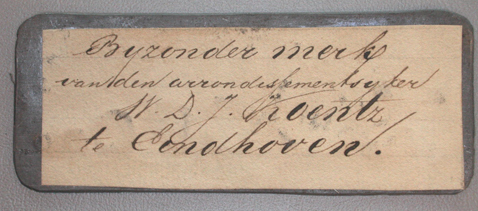 Byzonder merk
van den arrondissementsyker
W. D. J. Koentz
te Eindhoven.